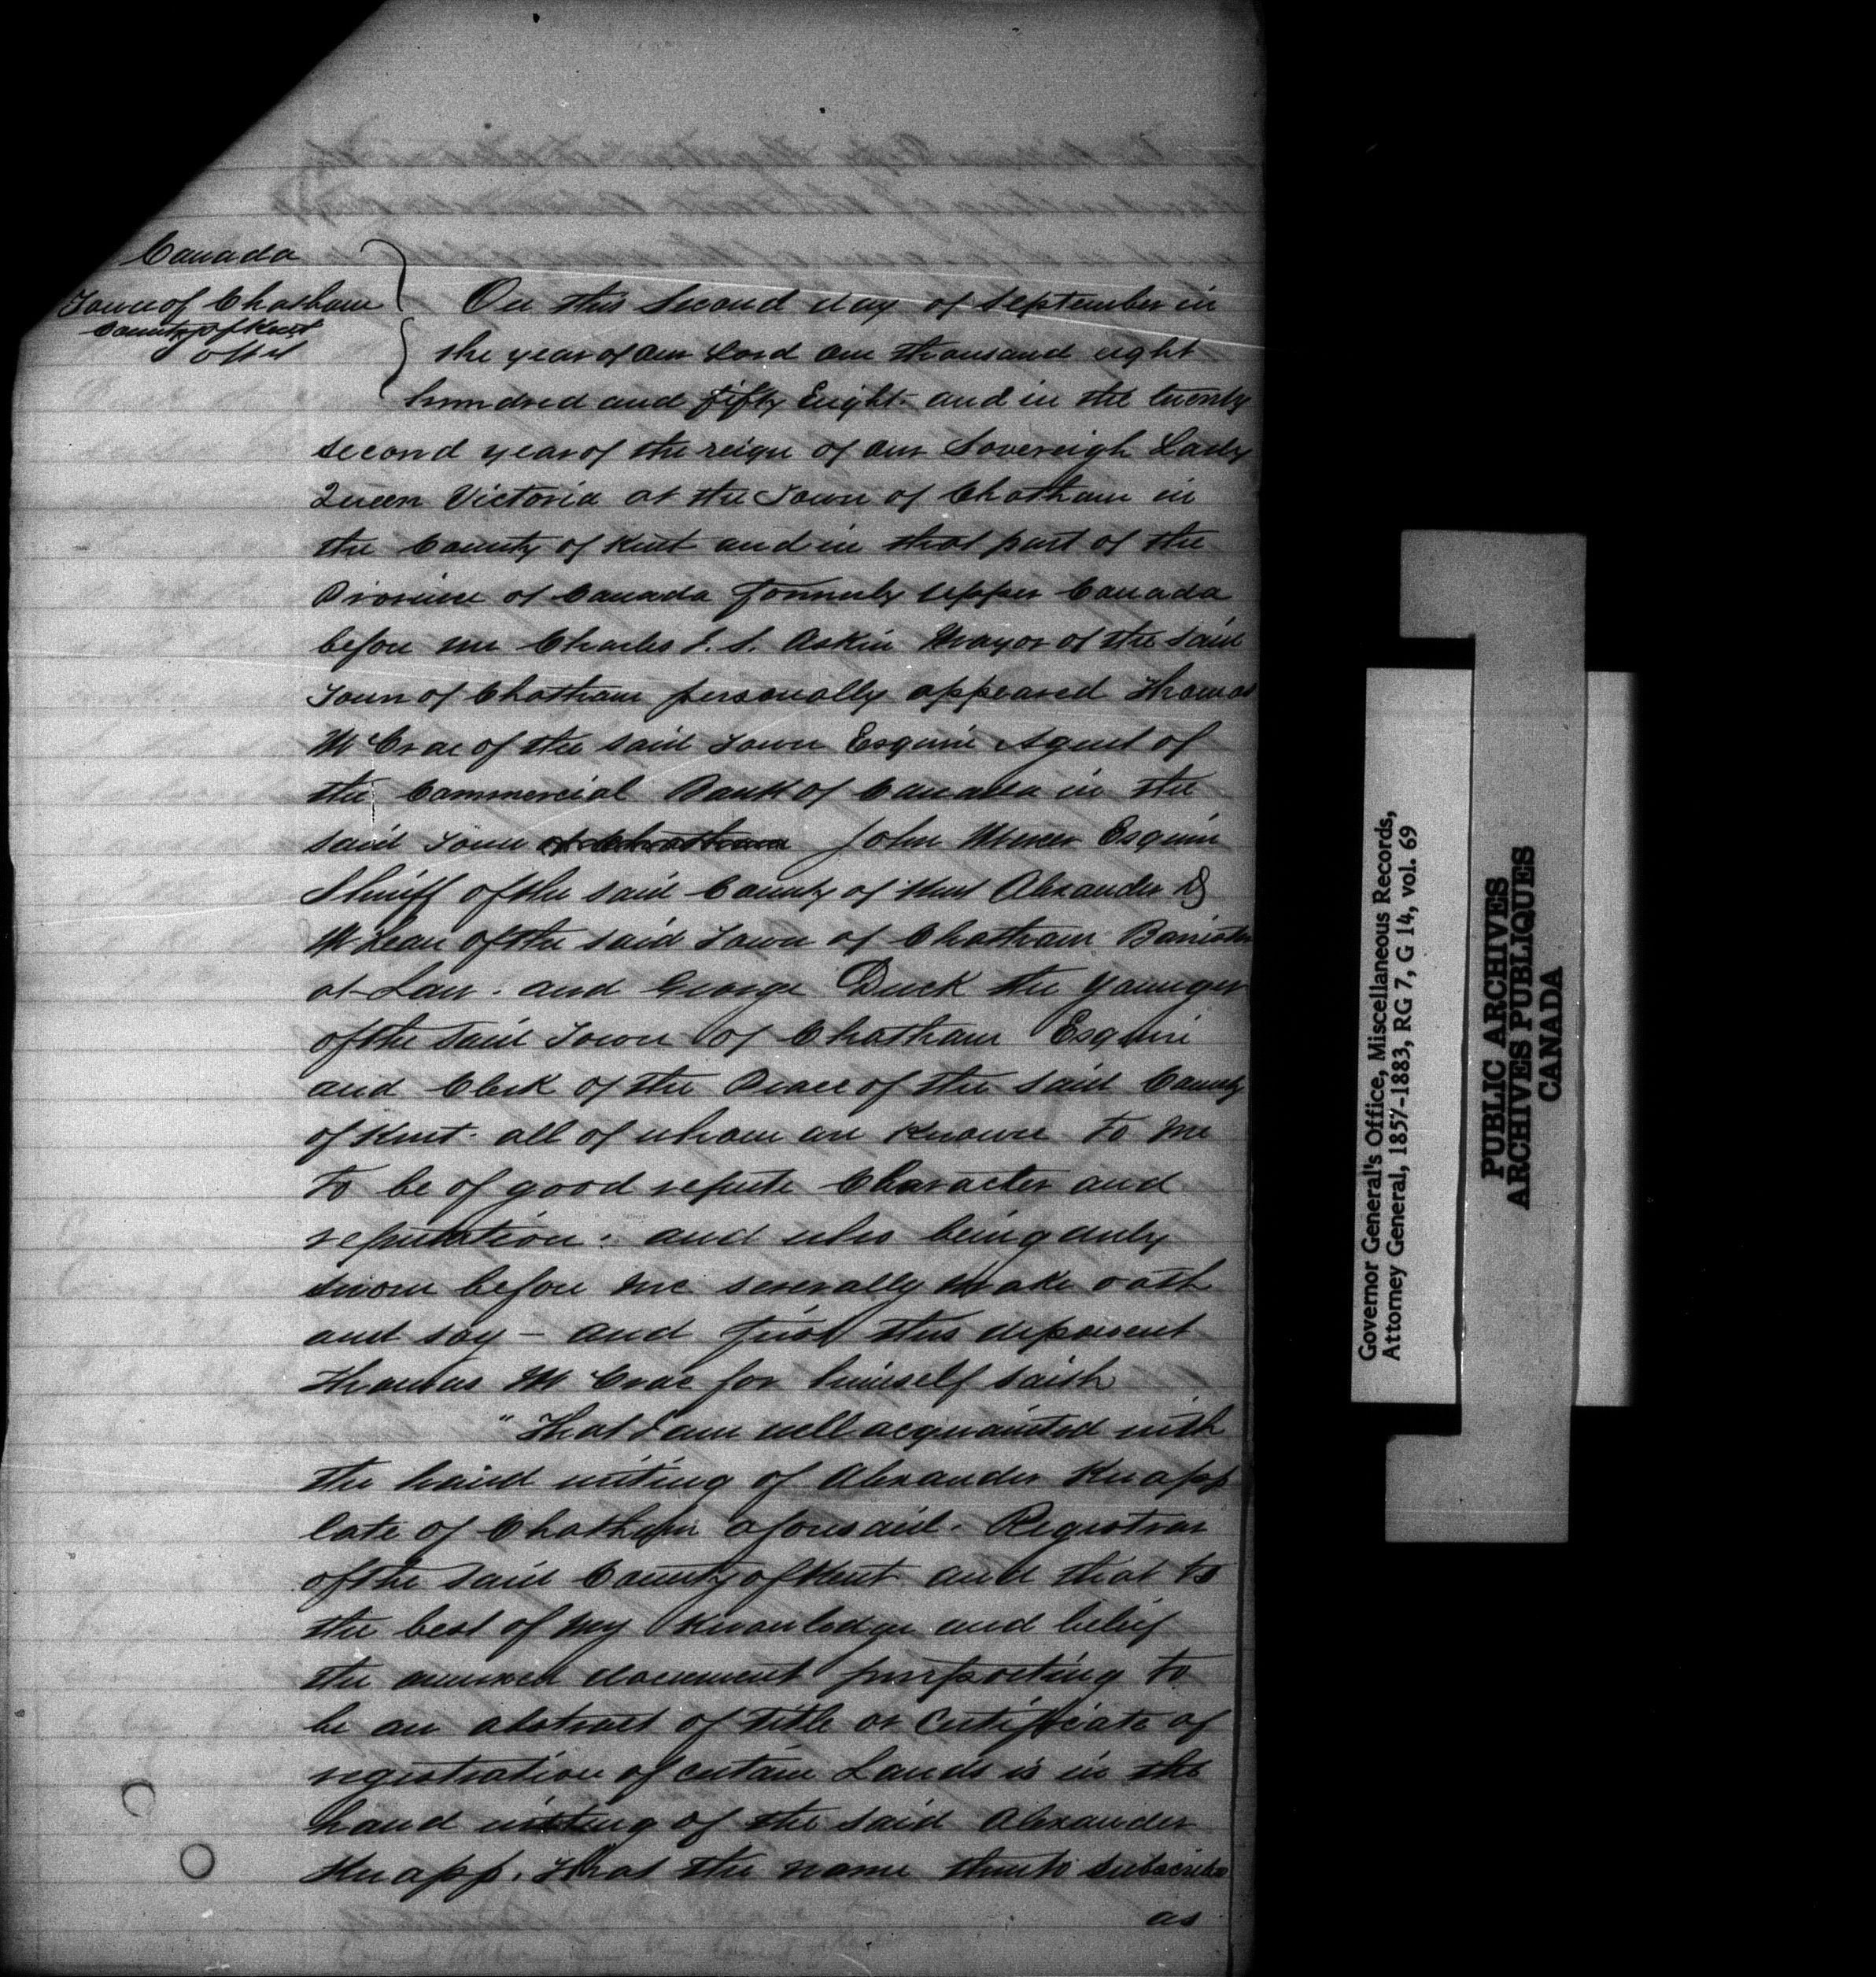 Canada
Town of Chatham
County of Kent
On this Second day of September in
the year of our Lord one thousand eight
hundred and fifty Eight and in the twenty
second year of the reign of our Sovereigh Lady
Queen Victoria at the Town of Chatham in
the County of Kent and in that part of the
Province of Canada formerly Upper Canada
before me Charles J. S. Askin Mayor of the said
Town of Chatham personally appeared Thomas
McCrae of the said Town Esquire Agent of
the Commercial Bank of Canada in the
said Town of Chatham John Mercer Esquire
Sheriff of the said County of Kent Alexander D
McLean of the said Town of Chatham Barrister
at-Law. and George Duck the younger
of the said Town of Chatham Esquire
and Clerk of the Peace of the said County
of Kent. all of whom are known to me
to be of good repute Character and
reputation. and who being duly
sworn before me severally make oath
and say – and first this deponent
Thomas McCrae for himself saith
"That I am well acquainted with
the hand writing of Alexander Knapp
late of Chatham aforesaid. Registrar
of the said County of Kent and that to
the best of my knowledge and belief
the annexed document purporting to
be an abstract of title or Certificate of
registration of certain Lands is in the
hand writing of the said Alexander
Knapp. that the name thereto subscribed
as
Governor General's Office, Miscellaneous Records,
Attorney General, 1857-1883, RG 7, G 14, vol. 69
PUBLIC ARCHIVES
ARCHIVES PUBLIQUES
CANADA